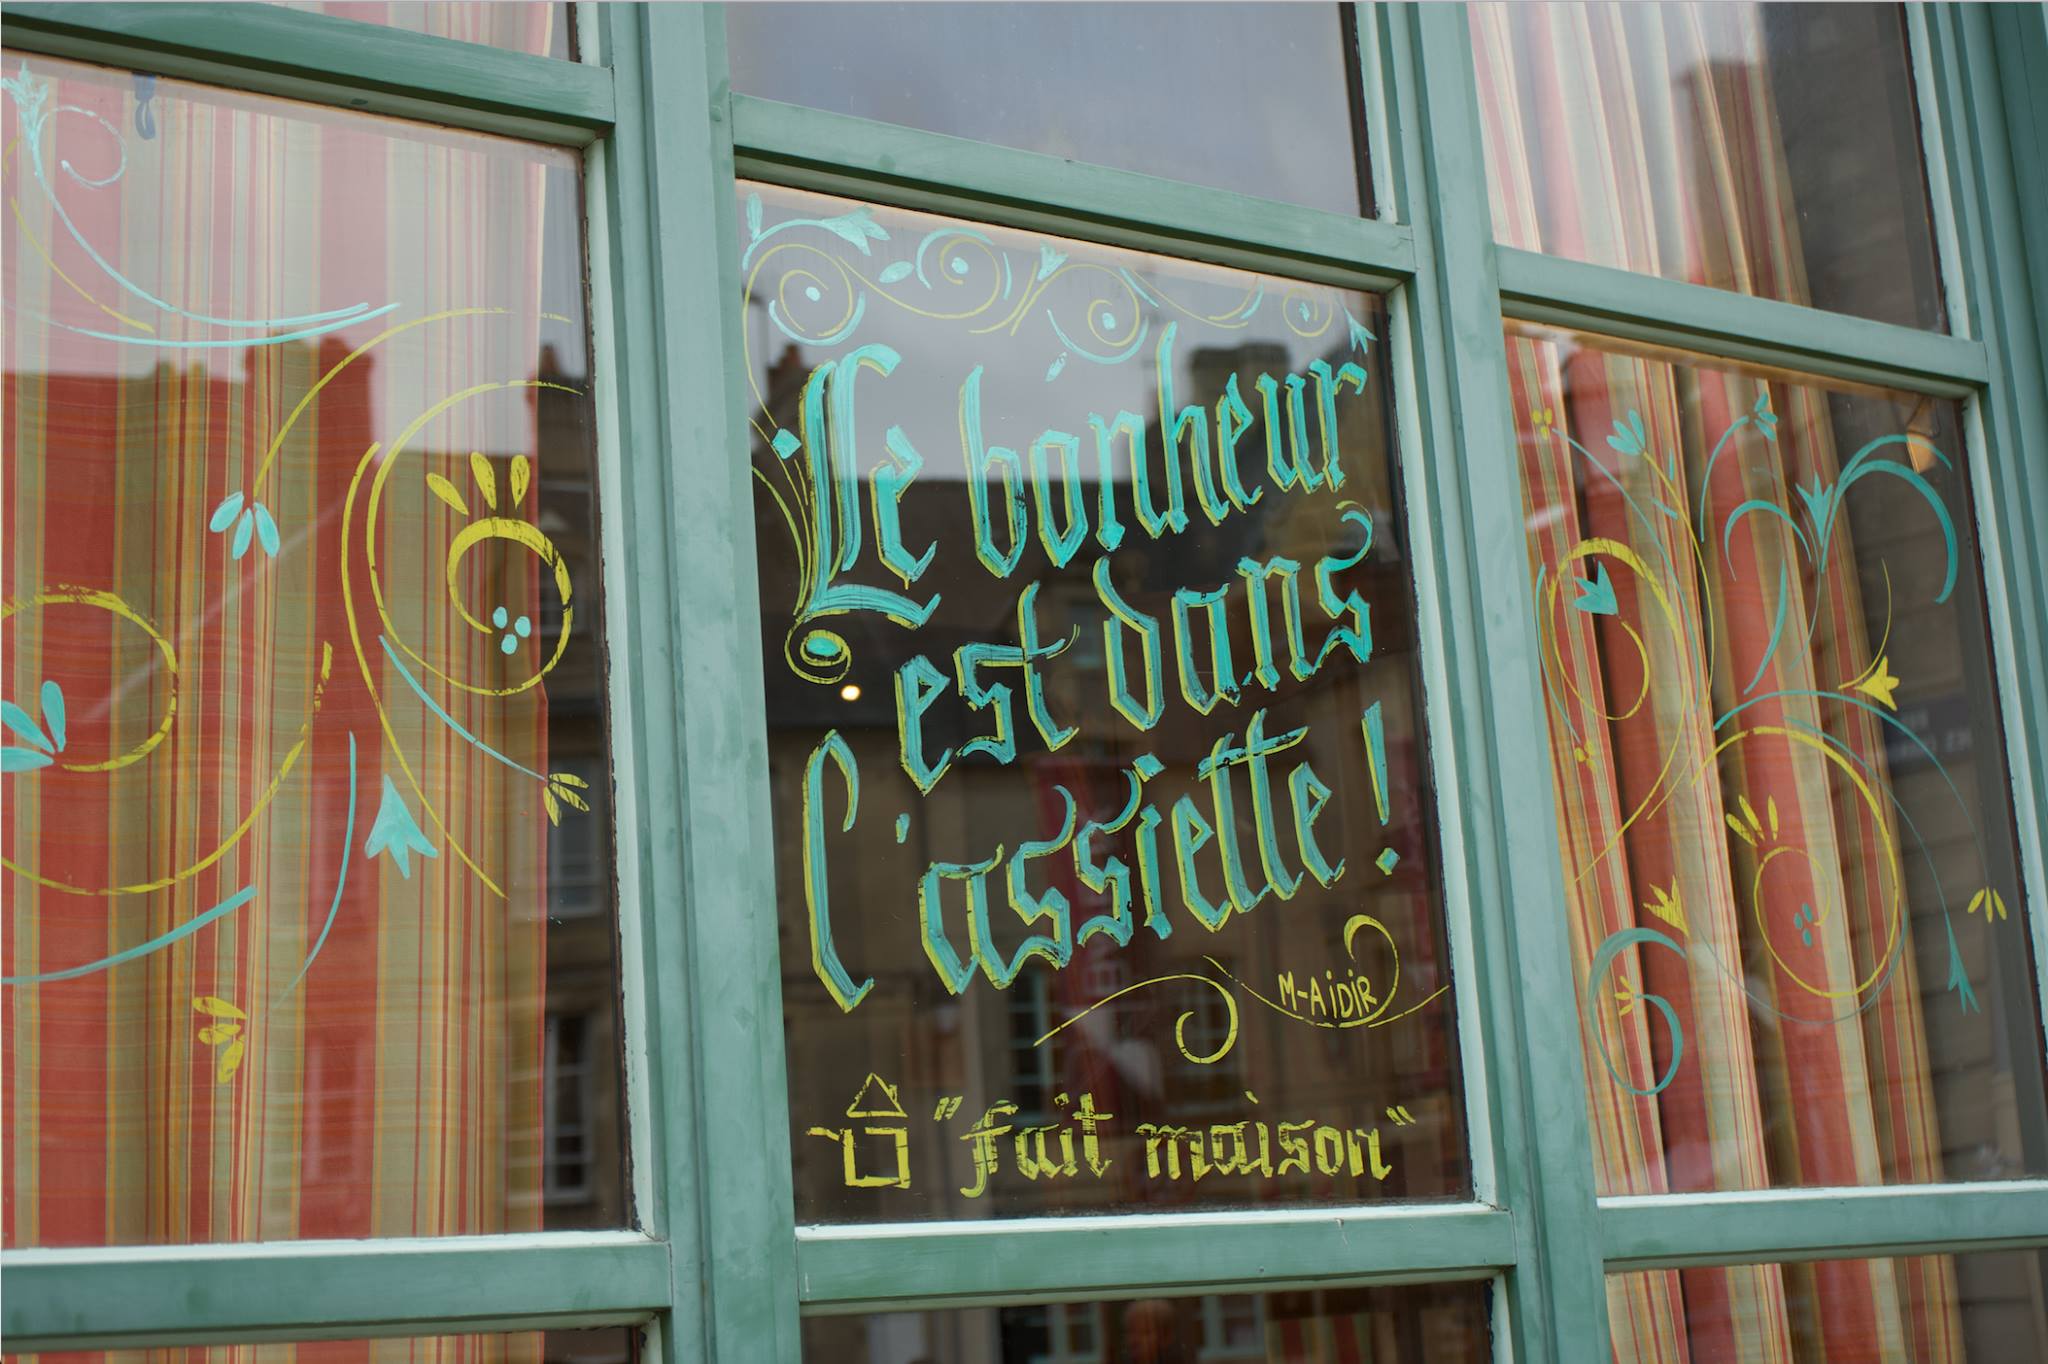 Le bonheur
est dans
l'assiette !
M-AiDiR
"fait maison"